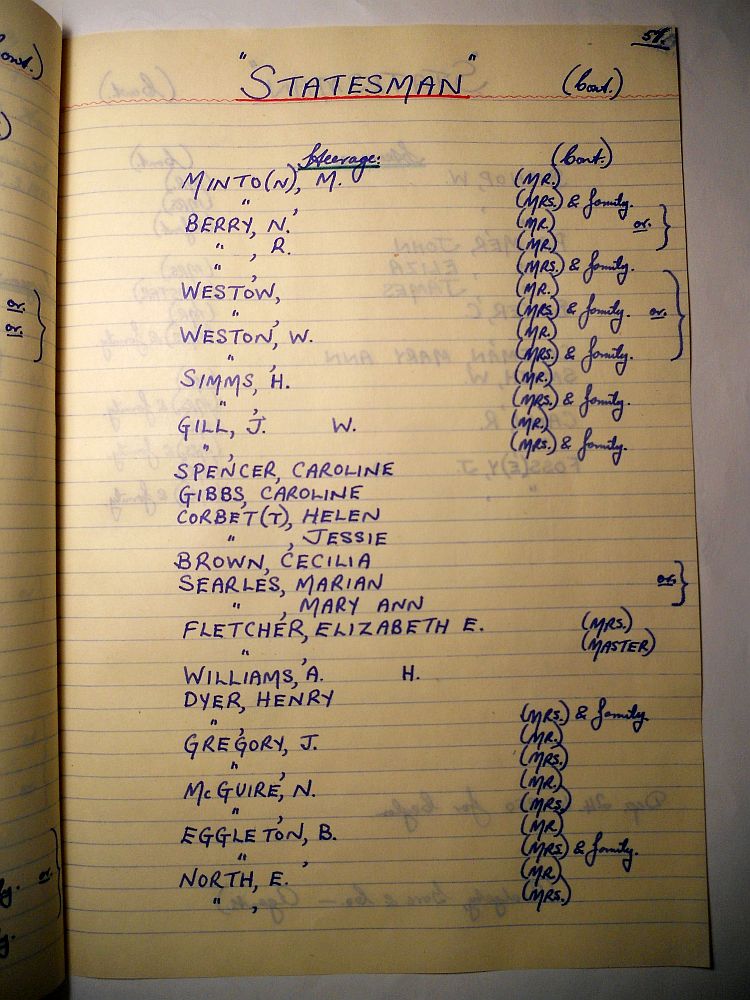 51.
"STATESMAN" (Cont.)
Steerage: (Cont.)
MINTO(N), M. (MR.)
" , (MRS.) & family.
BERRY, N. (MR.) or. }
" , R. (MR.)
" , (MRS.) & family.
WESTOW, (MR.)
" , (MRS.) & family. or. }
WESTON, W. (MR.)
" , (MRS.) & family.
SIMMS, H. (MR.)
" , (MRS.) & family.
GILL, J. W. (MR.)
" , (MRS.) & family.
SPENCER, CAROLINE
GIBBS, CAROLINE
CORBET(T), HELEN
" , JESSIE
BROWN, CECILIA
SEARLES, MARIAN or. }
" , MARY ANN
FLETCHER, ELIZABETH E. (MRS.)
" , (MASTER)
WILLIAMS, A. H.
DYER, HENRY
" , (MRS.) & family.
GREGORY, J. (MR.)
" , (MRS.)
McGUIRE, N. (MR.)
" , (MRS.)
EGGLETON, B. (MR.)
" , (MRS.) & family.
NORTH, E. (MR.)
" , (MRS.)